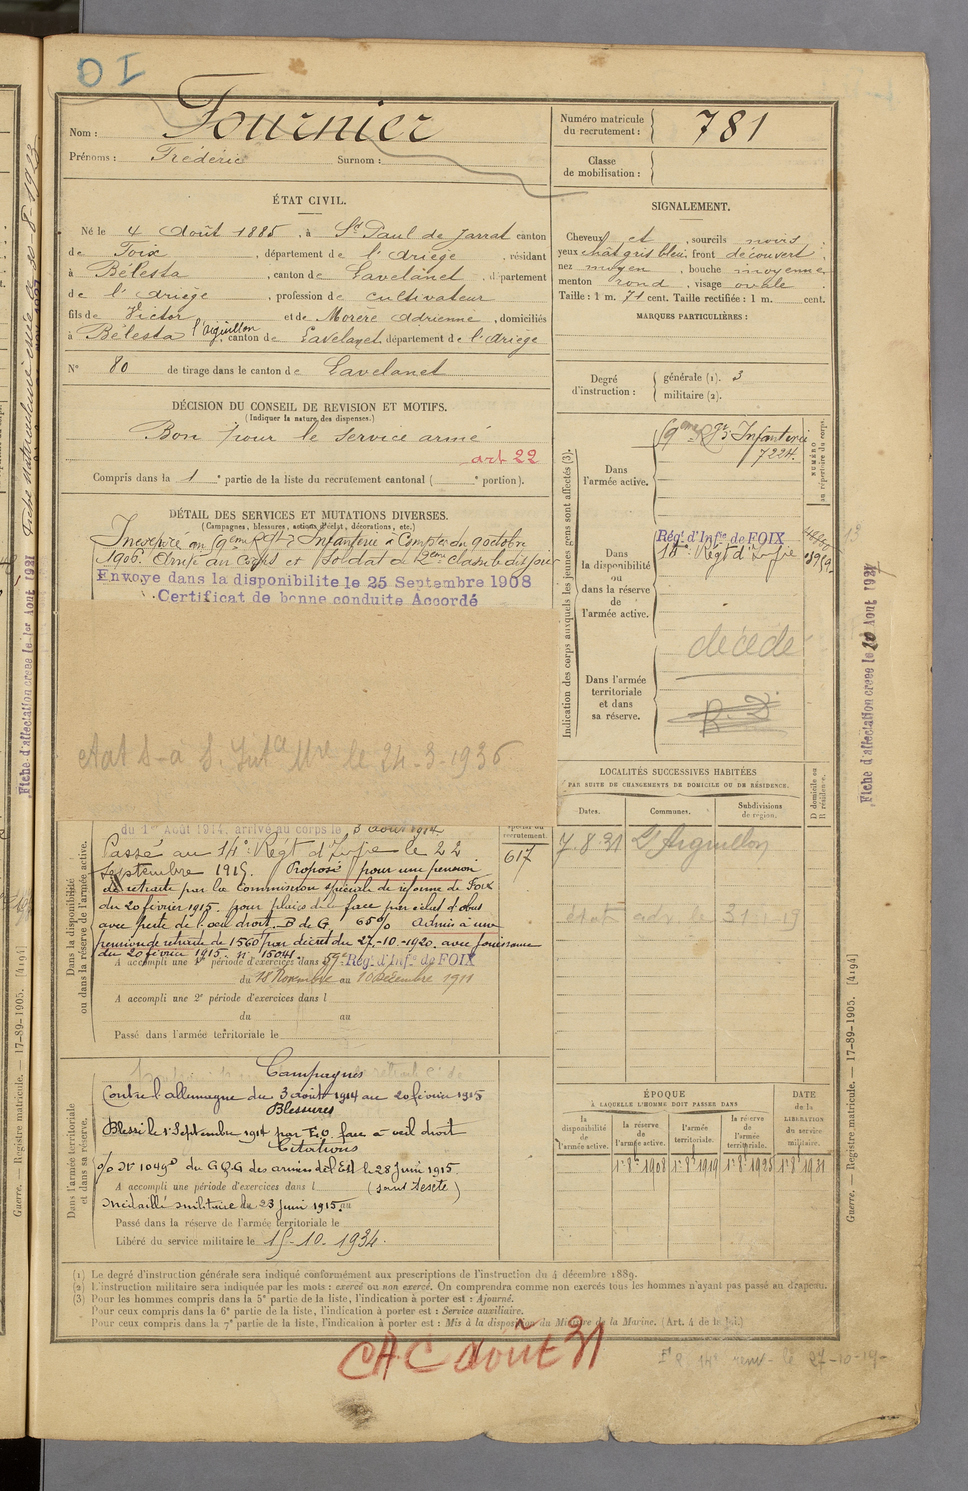 OI
Nom : Fournier
Prénoms : Frédéric Surnom :
Numéro matricule
du recrutement : 781
Classe
de mobilisation :
ÉTAT CIVIL.
Né le 4 Août 1885, à St Paul de Jarrat canton
de Foix, département de l'Ariège, résidant
à Bélesta, canton de Lavelanet, département
de l'Ariège, profession de cultivateur
fils de Victor et de Morere Adrienne, domiciliés
l'Aiguillon
à Bélesta, canton de Lavelanet, département de l'Ariège
N° 80 de tirage dans le canton de Lavelanet
SIGNALEMENT.
Cheveux et, sourcils noirs
yeux chât gris bleu, front découvert,
nez moyen, bouche moyenne,
menton rond, visage ovale.
Taille : 1 m. 71 cent. Taille rectifiée : 1 m. cent.
MARQUES PARTICULIÈRES :
Degré
d'instruction :
générale (1). 3
militaire (2).
DÉCISION DU CONSEIL DE REVISION ET MOTIFS.
(Indiquer la nature des dispenses.)
Bon pour le service armé
art 22
Compris dans la 1e partie de la liste du recrutement cantonal ( e portion).
DÉTAIL DES SERVICES ET MUTATIONS DIVERSES.
(Campagnes, blessures, actions d'éclat, décorations, etc.)
Incorporé au 9ème Regt d'Infanterie à Compter du 9 octobre
1906. Arrivé au Corps et Soldat de 2ème classe le dit jour
Envoye dans la disponibilite le 25 Septembre 1908
Certificat de bonne conduite Accordé
etat S-a S. Int Mre le 24-3-1936
du 1er Août 1914, arrivé au corps le 3 août 1914
Passé au 14e Regt d'Infie le 22
Septembre 1915. Proposé pour une pension
de retraite par la Commission spéciale de réforme de Foix
du 20 février 1915. pour plaies de la face par éclat d'obus
avec perte de l'œil droit. B de G, 65% Admis à une
pension de retraite de 1560f par décret du 27-10-1920. avec jouissance
du 20 février 1915. n° 15041.
A accompli une 1e période d'exercices dans 59e Régt d'Infie de FOIX
du 18 Novembre au 10 Décembre 1911
A accompli une 2e période d'exercices dans l
du au
Passé dans l'armée territoriale le
recrutement.
617
Dans la disponibilité
ou dans la réserve de l'armée active.
Campagnes
Contre l'allemagne du 3 août 1914 au 20 février 1915
Blessures
Blessé le 1er Septembre 1914 par E.O. face - œil droit
Citations
o/o N° 1049D du G.Q.G des armées de l'Est le 28 juin 1915
A accompli une période d'exercices dans l (sans texte)
Médaille militaire du 23 juin 1915. au
Passé dans la réserve de l'armée territoriale le
Libéré du service militaire le 15-10-1934.
Dans l'armée territoriale
et dans sa réserve.
Indication des corps auxquels les jeunes gens sont affectés (3).
Dans
l'armée active.
9ème Rgt d'Infanterie
7224.
NUMÉRO
au répertoire du corps.
Dans
la disponibilité
ou
dans la réserve
de
l'armée active.
Régt d'Infie de FOIX
14e Regt d'Infie
décédé
Dans l'armée
territoriale
et dans
sa réserve.
LOCALITÉS SUCCESSIVES HABITÉES
PAR SUITE DE CHANGEMENTS DE DOMICILE OU DE RÉSIDENCE.
Dates. Communes. Subdivisions
de région.
D domicile ou
R résidence.
7.8.31 L'Aiguillon
ÉPOQUE
À LAQUELLE L'HOMME DOIT PASSER DANS
la
disponibilité
de
l'armée active.
la réserve
de
l'armée active.
l'armée
territoriale.
la réserve
de
l'armée
territoriale.
DATE
de la
LIBÉRATION
du service
militaire.
1er 8e 1908 1er 8e 1919 1er 8e 1925 1er 8e 1931
(1) Le degré d'instruction générale sera indiqué conformément aux prescriptions de l'instruction du 4 décembre 1889.
(2) L'instruction militaire sera indiquée par les mots : exercé ou non exercé. On comprendra comme non exercés tous les hommes n'ayant pas passé au drapeau.
(3) Pour les hommes compris dans la 5e partie de la liste, l'indication à porter est : Ajourné.
Pour ceux compris dans la 6e partie de la liste, l'indication à porter est : Service auxiliaire.
Pour ceux compris dans la 7e partie de la liste, l'indication à porter est : Mis à la disposition du Ministre de la Marine. (Art. 4 de la loi.)
CAC août 31
le 27-10-14
Fiche d'affectation creee le 20 Aout 1931
Guerre. — Registre matricule. — 17-89-1905. [4194]
Fiche d'affectation creee le 1er Aout 1931
Guerre. — Registre matricule. — 17-89-1905. [4194]